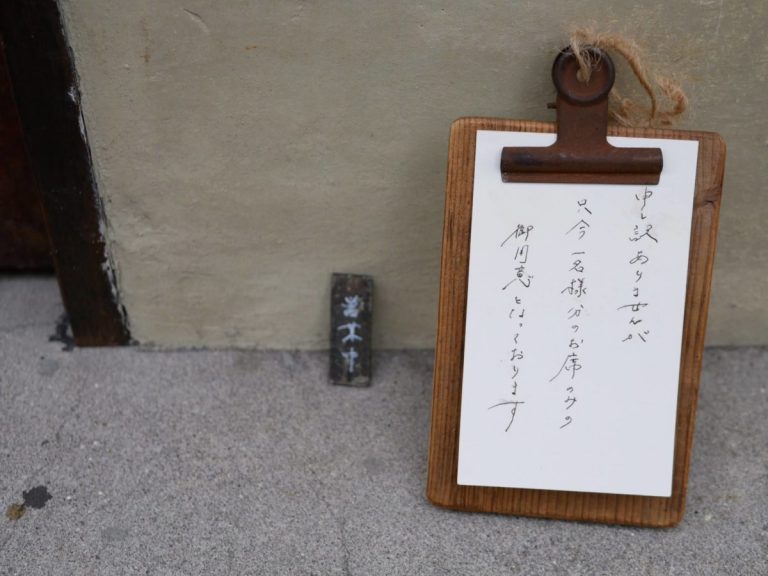 申し訳ありませんが
只今一名様分のお席のみの
御用意となっております
営業中